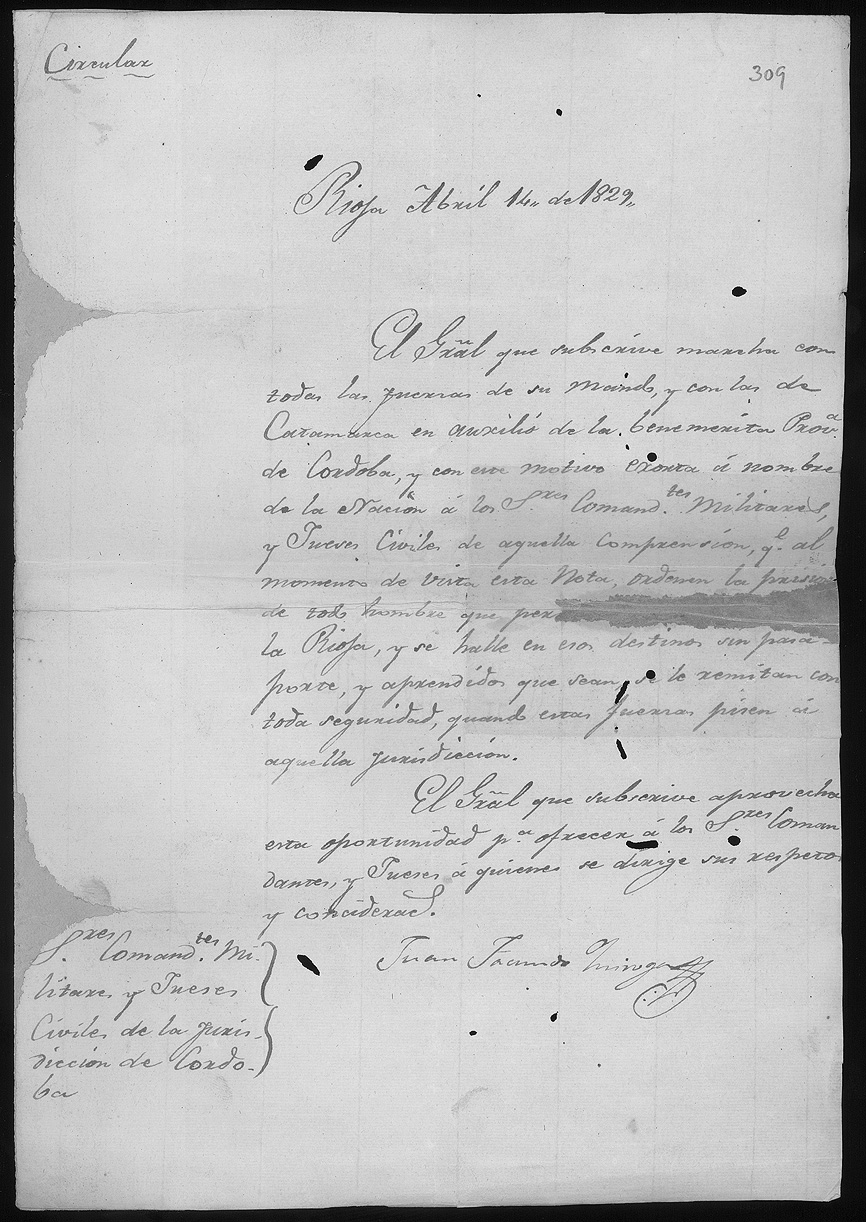 Circular
309
Rioja Abril 14,, de 1829,,
El Gral que subscrive marcha con
todas las fuerzas de su mando, y con las de
Catamarca en auxilio de la benemerita Prov.a
de Cordoba, y con este motivo exorta á nombre
de la Nacion á los S.res Comand.tes Militares,
y Jueses Civiles de aquella comprension, q.e al
momento de vista esta Nota, ordenen la prision
de todo hombre que per
la Rioja, y se halle en esos destinos sin pasa-
porte, y aprendidos que sean, se le remitan con
toda seguridad, quando estas fuerzas pisen á
aquella jurisdiccion.
El Gral que subscrive aprovecha
esta oportunidad p.a ofrecer á los S.res Coman
dantes, y Jueses á quienes se dirige sus respetos
y conciderac.s
Juan Facundo Quiroga
S.res Comand.tes Mi-
litares y Jueses
Civiles de la Juris-
diccion de Cordo-
ba